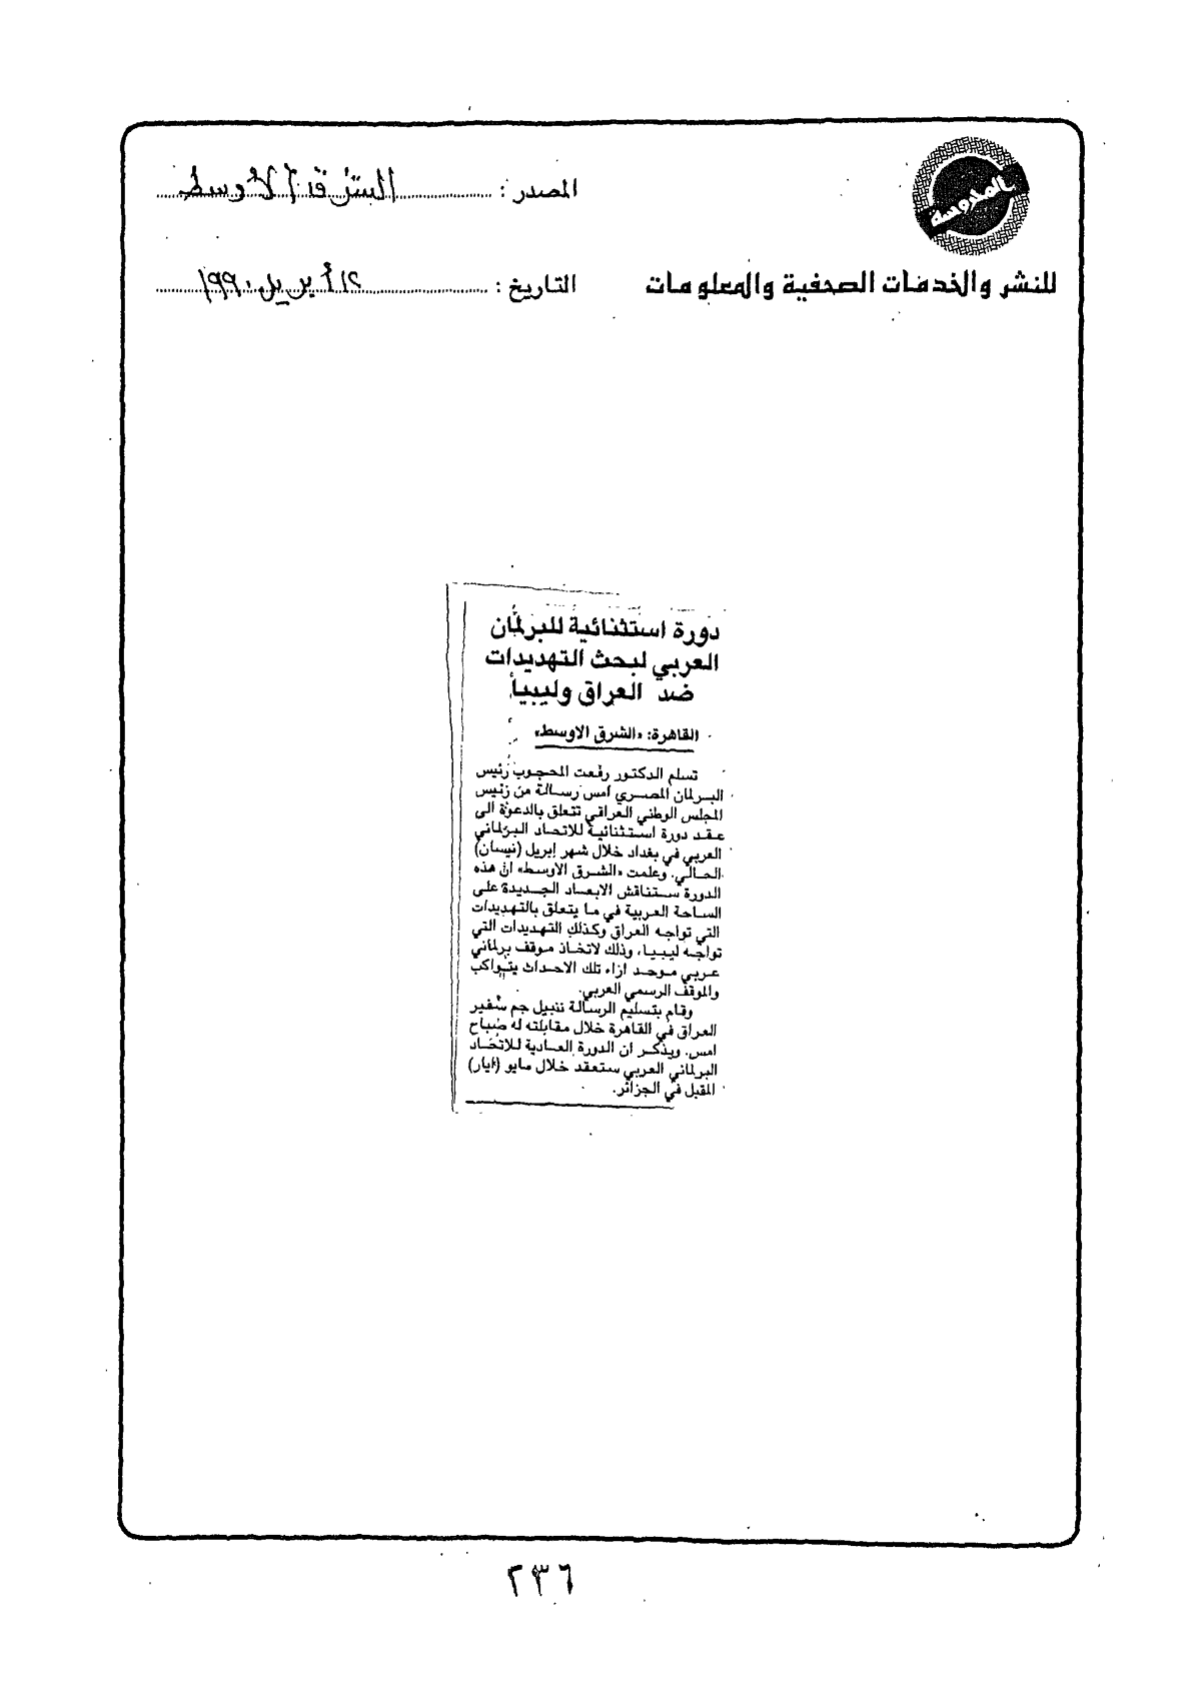 المحروسة
المصدر : الشرق الأوسط
للنشر والخدمات الصحفية والمعلومات
التاريخ : ١٢ أبريل ١٩٩٠
دورة استثنائية للبرلمان
العربي لبحث التهديدات
ضد العراق وليبيا
القاهرة: «الشرق الاوسط»
تسلم الدكتور رفعت المحجوب رئيس
البرلمان المصري امس رسالة من رئيس
المجلس الوطني العراقي تتعلق بالدعوة الى
عقد دورة استثنائية للاتحاد البرلماني
العربي في بغداد خلال شهر إبريل (نيسان)
الحالي. وعلمت «الشرق الاوسط» ان هذه
الدورة ستناقش الابعاد الجديدة على
الساحة العربية في ما يتعلق بالتهديدات
التي تواجه العراق وكذلك التهديدات التي
تواجه ليبيا، وذلك لاتخاذ موقف برلماني
عربي موحد ازاء تلك الاحداث يتواكب
والموقف الرسمي العربي.
وقام بتسليم الرسالة نبيل جم سفير
العراق في القاهرة خلال مقابلته له صباح
امس. ويذكر ان الدورة العادية للاتحاد
البرلماني العربي ستعقد خلال مايو (ايار)
المقبل في الجزائر.
٢٣٦